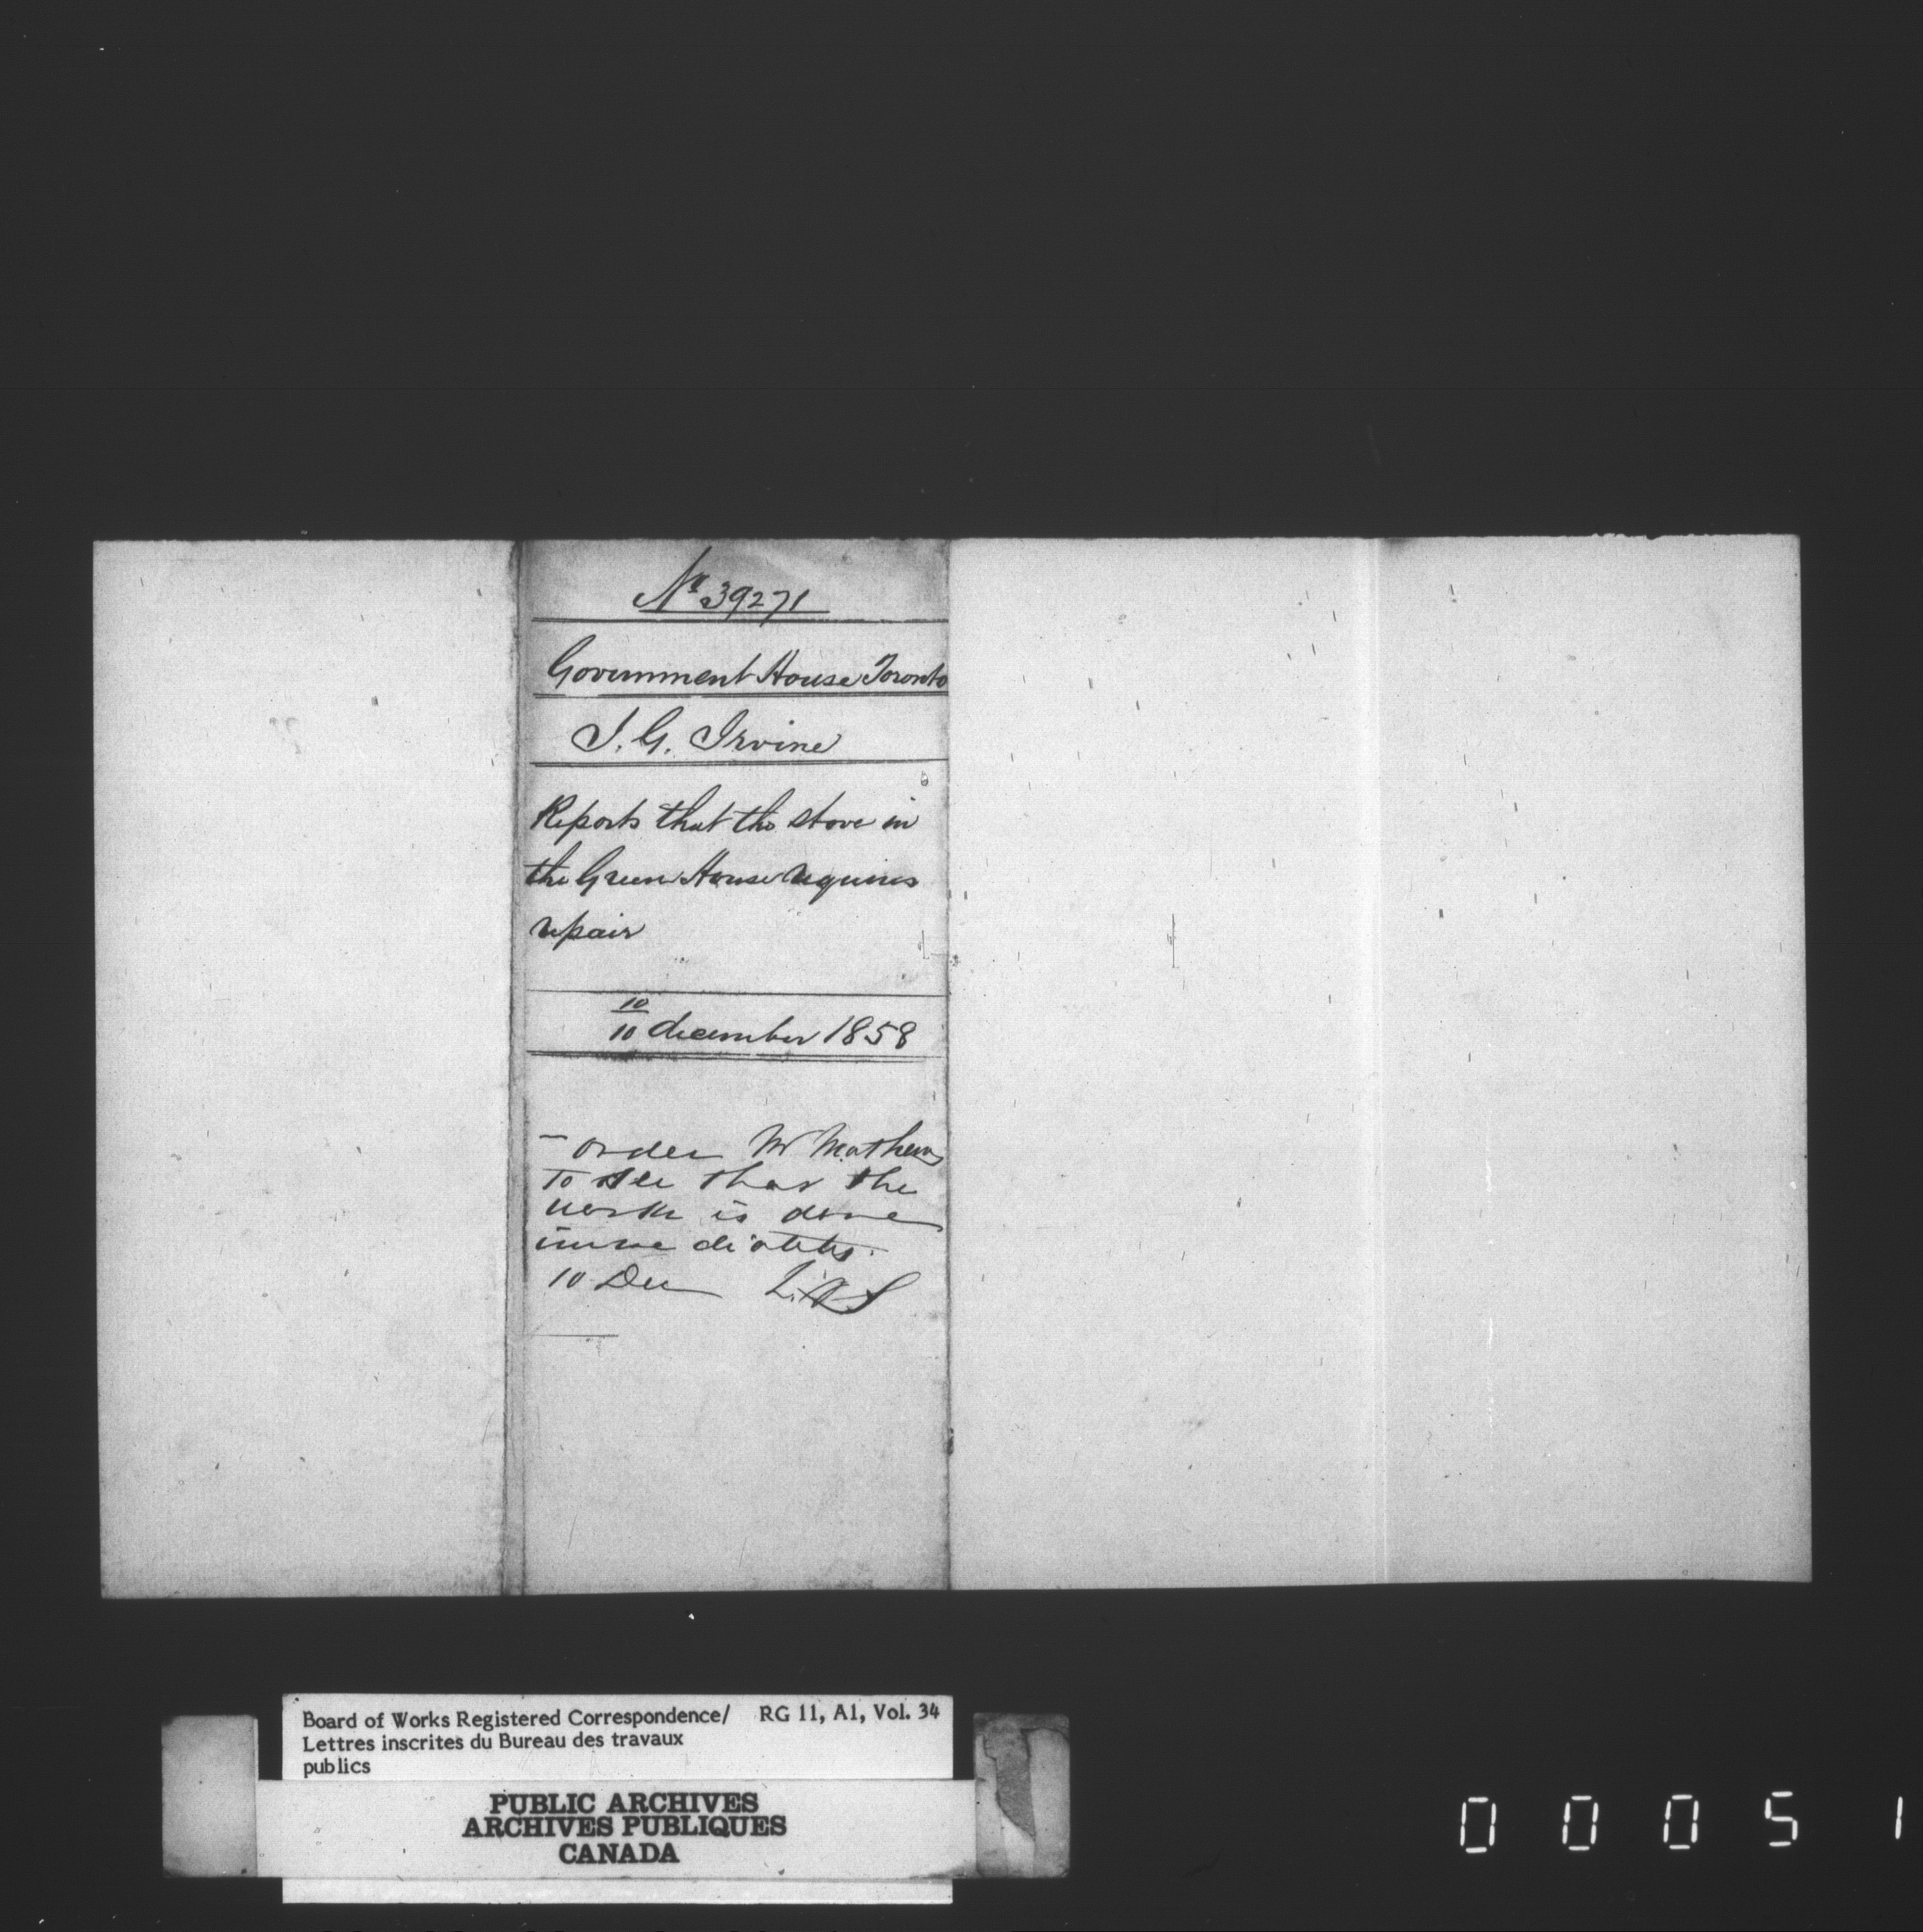 No 39271
Government House Toronto
J. G. Irvine
Reports that the stove in
the Green House requires
repair
10
10 december 1858
- Order Mr Mathews
To see that the
work is done
immediately.
10 Dec
Board of Works Registered Correspondence/ RG 11, A1, Vol. 34
Lettres inscrites du Bureau des travaux
publics
PUBLIC ARCHIVES
ARCHIVES PUBLIQUES
CANADA
0 0 0 5 1